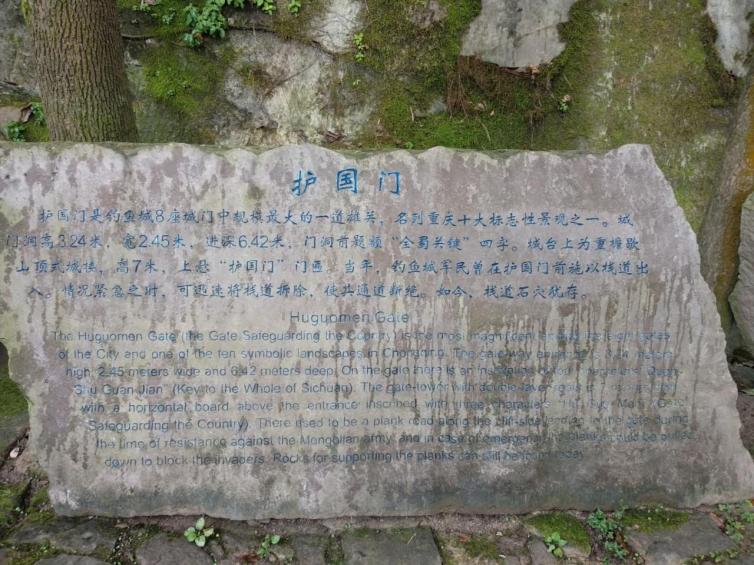 护国门
护国门是钓鱼城8座城门中规模最大的一道雄关，名列重庆十大标志性景观之一。城
门洞高3.24米，宽2.45米，进深6.42米，门洞前题额“全蜀关键”四字。城台上为重檐歇
山顶式城楼，高7米，上悬“护国门”门匾。当年，钓鱼城军民曾在护国门前施以栈道出
入。情况紧急之时，可迅速将栈道拆除，使其通道断绝。如今，栈道石穴犹存。
Huguomen Gate
The Huguomen Gate (the Gate Safeguarding the Country) is the most magnificent among the eight gates
of the City and one of the ten symbolic landscapes in Chongqing. The gate-way entrance is 3.24 meters
high, 2.45 meters wide and 6.42 meters deep. On the gate there is an inscription of four characters "Quan
Shu Guan Jian" (Key to the Whole of Sichuan). The gate-tower with double-layer roofs is 7 meters high
with a horizontal board above the entrance inscribed with three characters "Hu Guo Men" (Gate
Safeguarding the Country). There used to be a plank road along the cliff-side leading to the gate during
the time of resistance against the Mongolian army, and in case of emergency the planks could be pulled
down to block the invaders. Rocks for supporting the planks can still be found today.